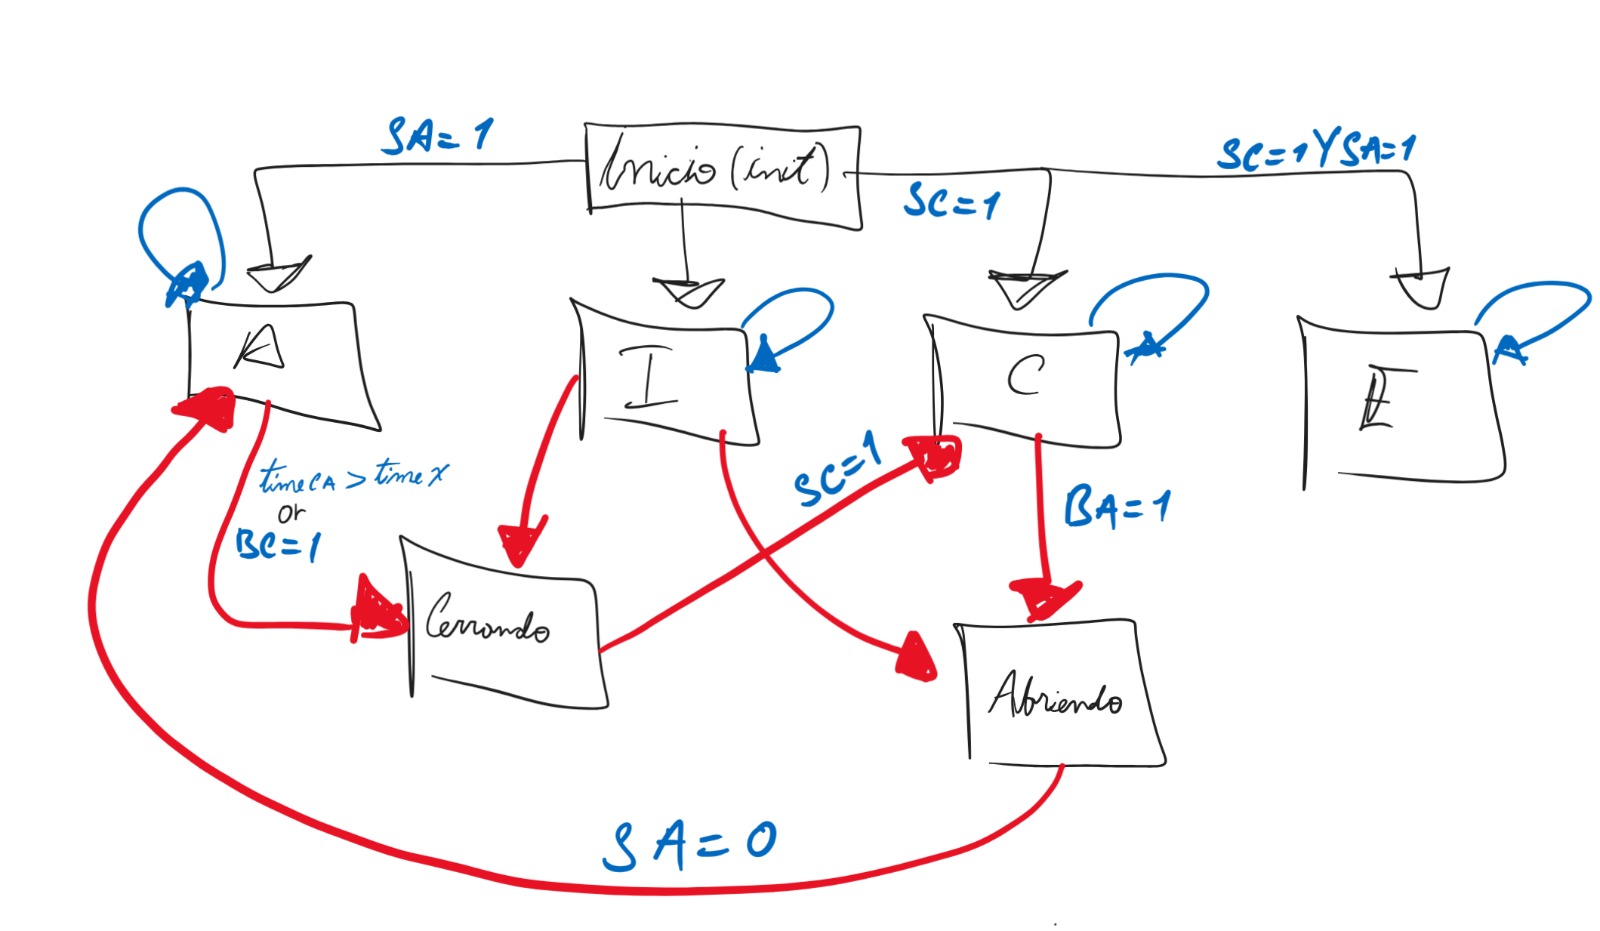 SA=1
Inicio (init)
SC=1
SC=1 Y SA=1
A
I
C
E
timeCA > timeX
or
BC=1
SC=1
BA=1
Cerrando
Abriendo
SA=0